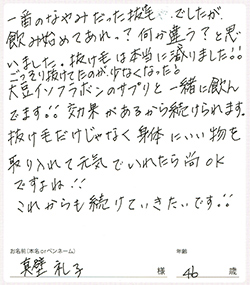 一番のなやみだった抜毛…でしたが、
飲み始めてあれっ?何か違う?と思
いました。抜け毛は本当に減りました!!
ごっそり抜けてたのが少なくなった♪
大豆イソフラボンのサプリと一緒に飲ん
でます!!効果があるから続けられます。
抜け毛だけじゃなく身体にいい物を
取り入れて元気でいれたら尚OK
ですよね!!
これからも続けていきたいです!!
お名前(本名orペンネーム)
年齢
真壁 礼子 様 46 歳